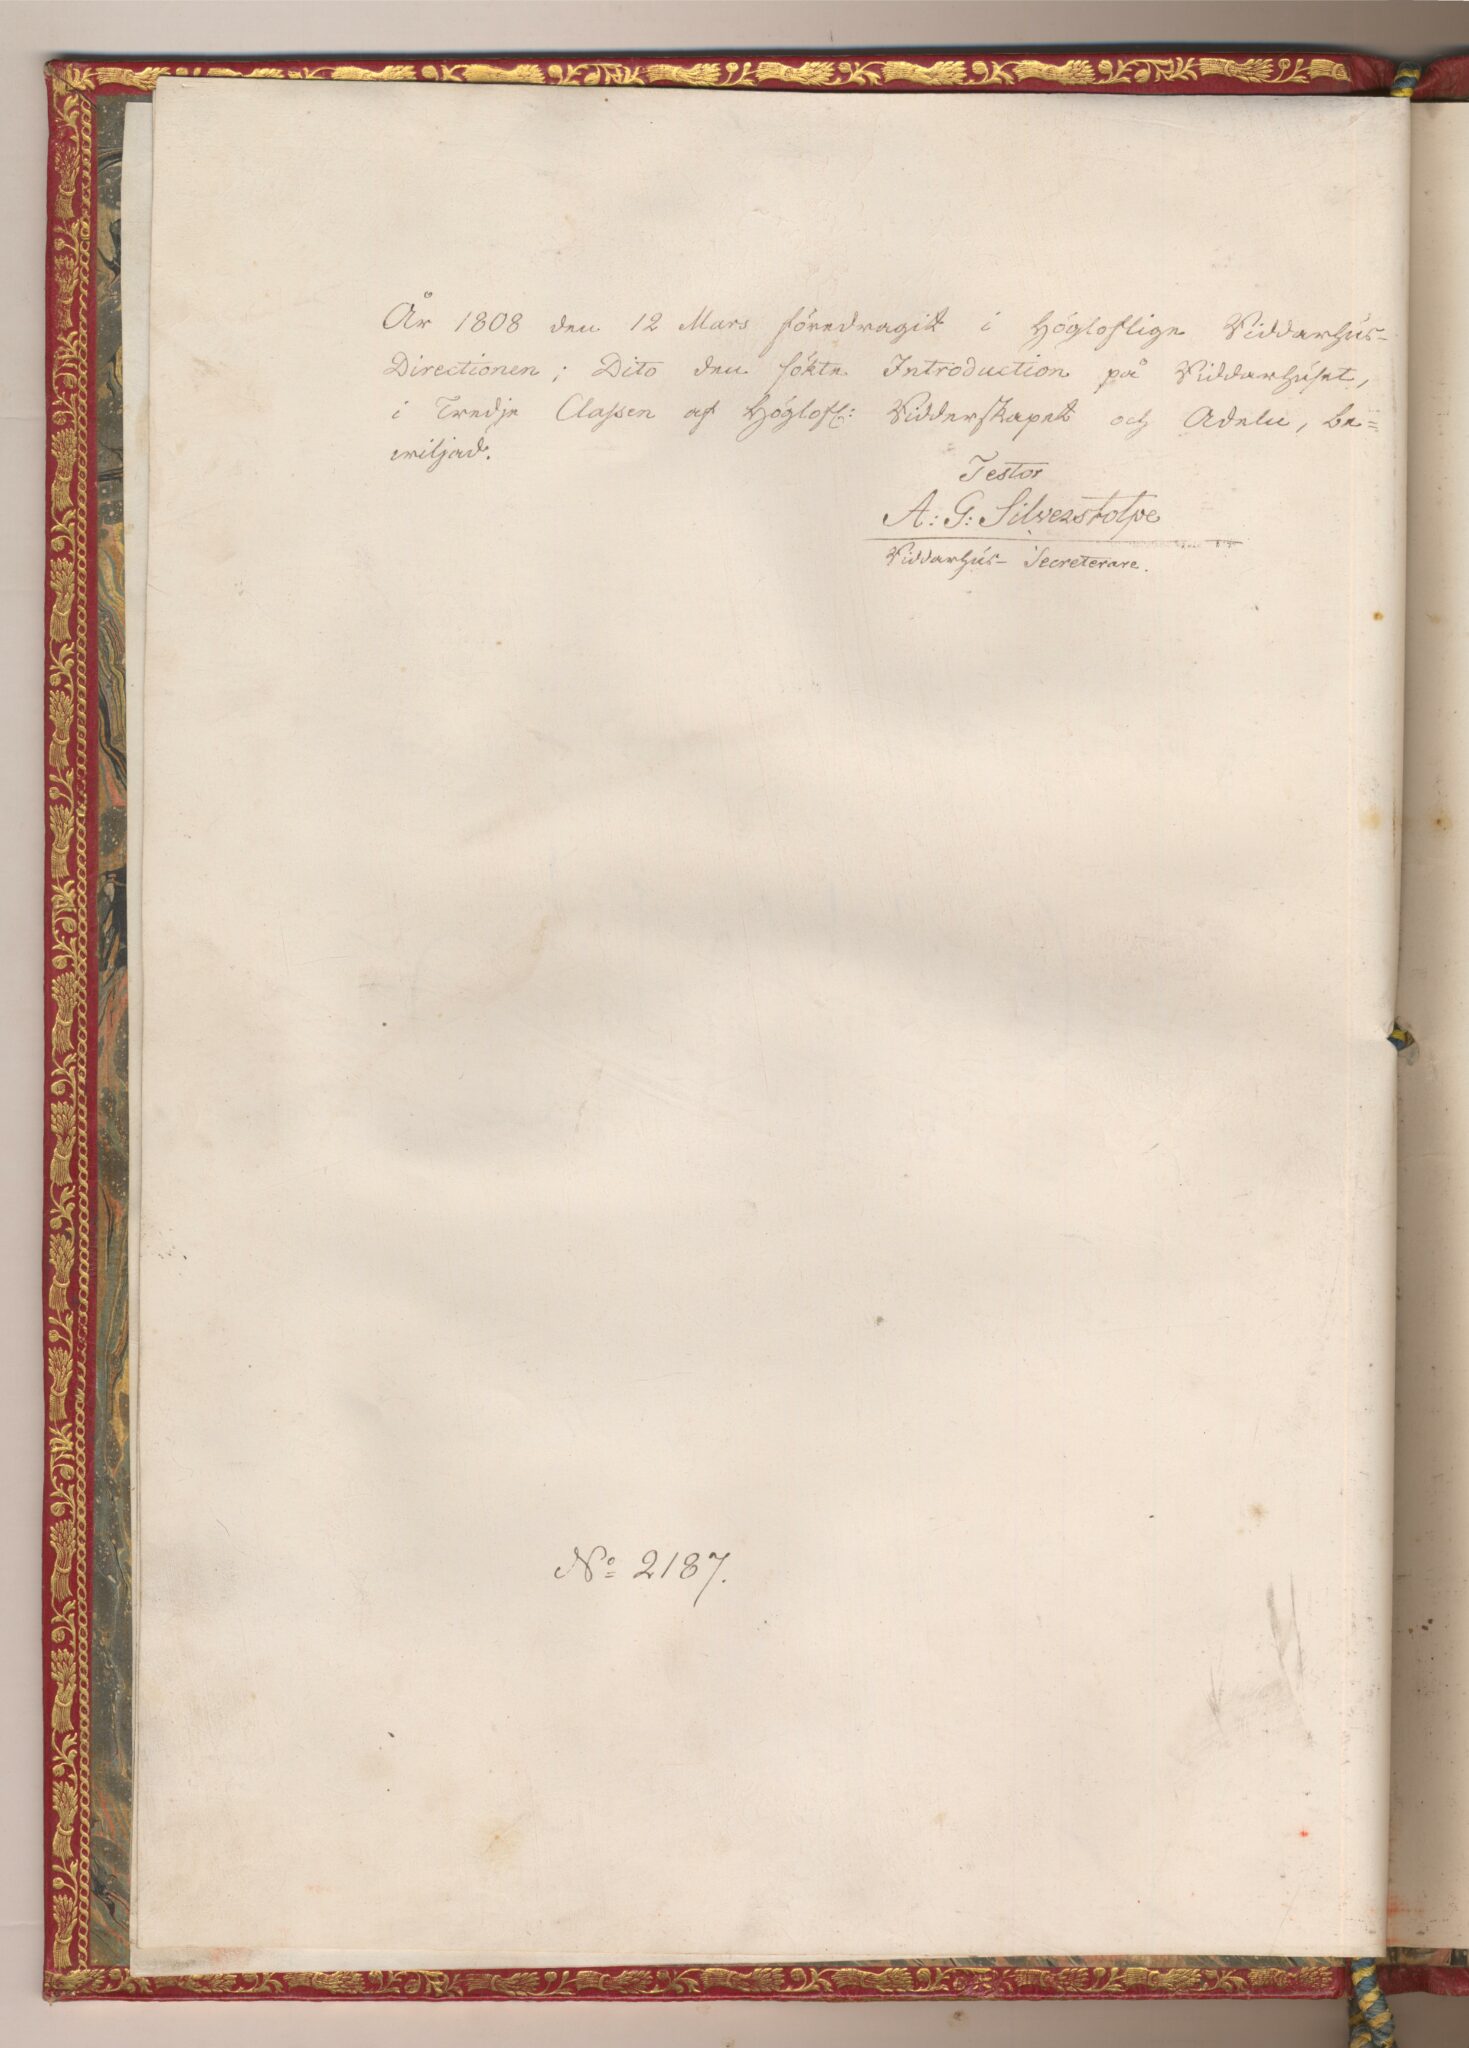 År 1808 den 12 Mars föredragit i Högloflige Riddarhus-
Directionen; Dito den sökte Introduction på Riddarhuset,
i Tredje Classen af Höglofl: Ridderskapet och Adeln, be=
wiljad.
Testor
A: G: Silverstolpe
Riddarhus- Secreterare.
No 2187.